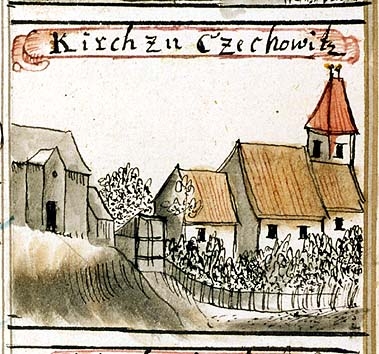 Kirch zu Czechowitz